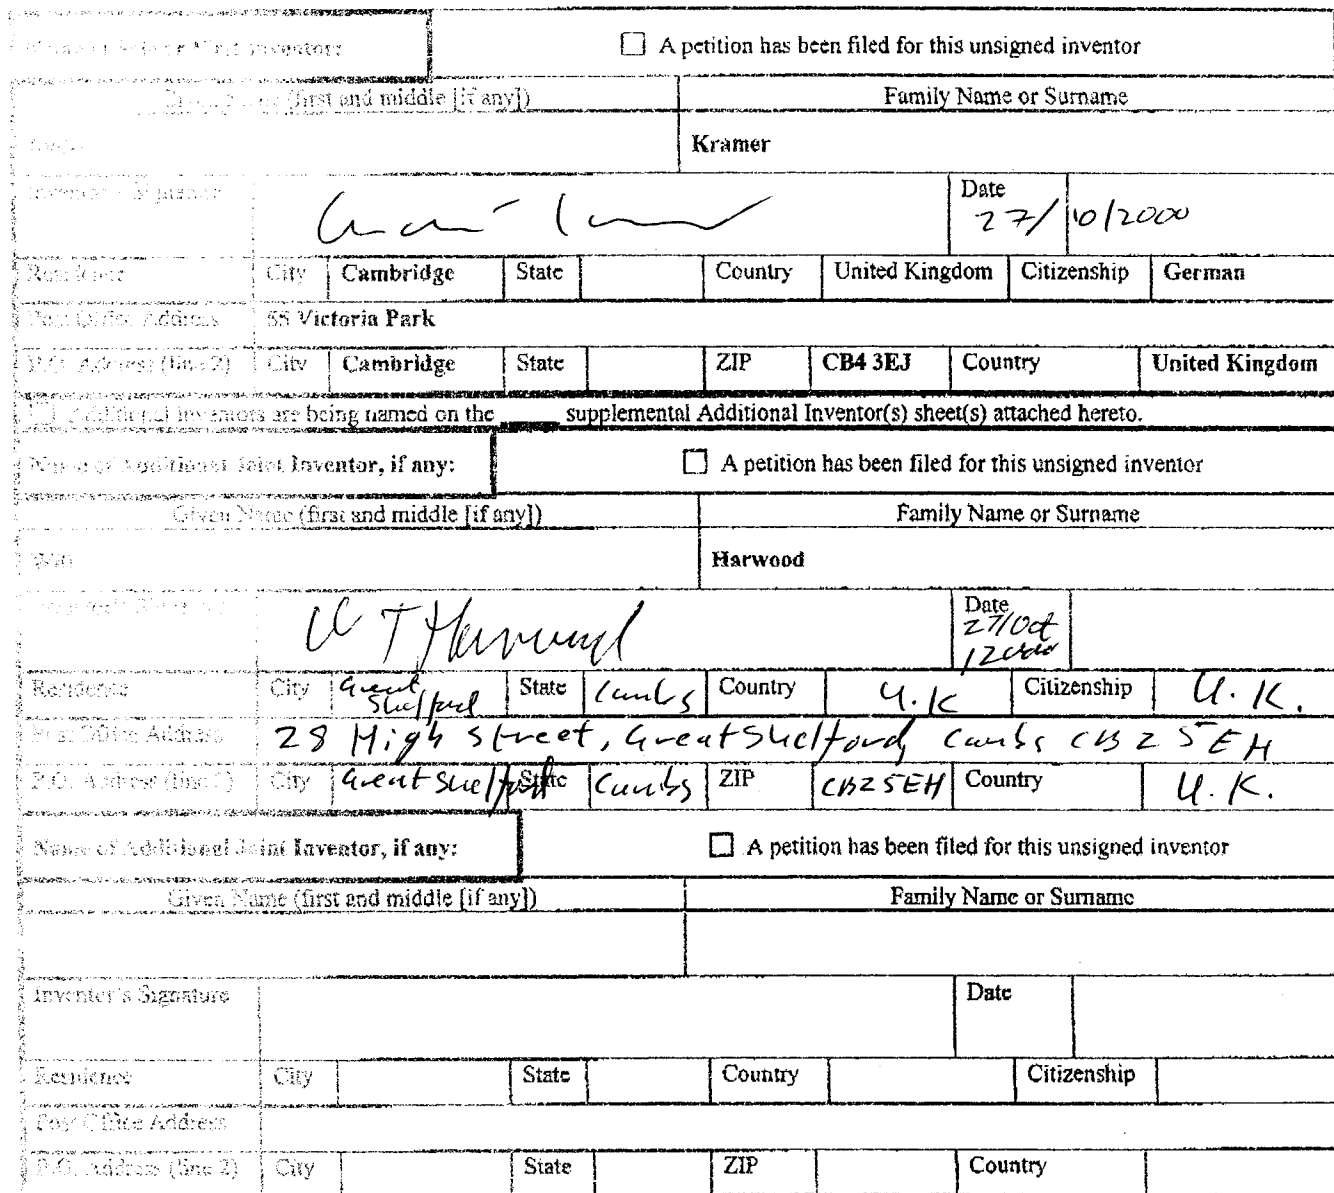 ☐ A petition has been filed for this unsigned inventor
(first and middle [if any]) Family Name or Surname
Kramer
Date 27/10/2000
Residence City Cambridge State Country United Kingdom Citizenship German
Post Office Address 55 Victoria Park
P.O. Address (line 2) City Cambridge State ZIP CB4 3EJ Country United Kingdom
Additional inventors are being named on the ____ supplemental Additional Inventor(s) sheet(s) attached hereto.
Name of Additional Joint Inventor, if any: ☐ A petition has been filed for this unsigned inventor
Given Name (first and middle [if any]) Family Name or Surname
Harwood
Inventor's Signature W T Harwood Date 27/Oct
Residence City Great Shelford State Cambs Country U.K Citizenship U.K.
Post Office Address 28 High Street, Great Shelford, Cambs CB2 5EH
P.O. Address (line 2) City Great Shelford State Cambs ZIP CB2 5EH Country U.K.
Name of Additional Joint Inventor, if any: ☐ A petition has been filed for this unsigned inventor
Given Name (first and middle [if any]) Family Name or Surname
Inventor's Signature Date
Residence City State Country Citizenship
Post Office Address
P.O. Address (line 2) City State ZIP Country